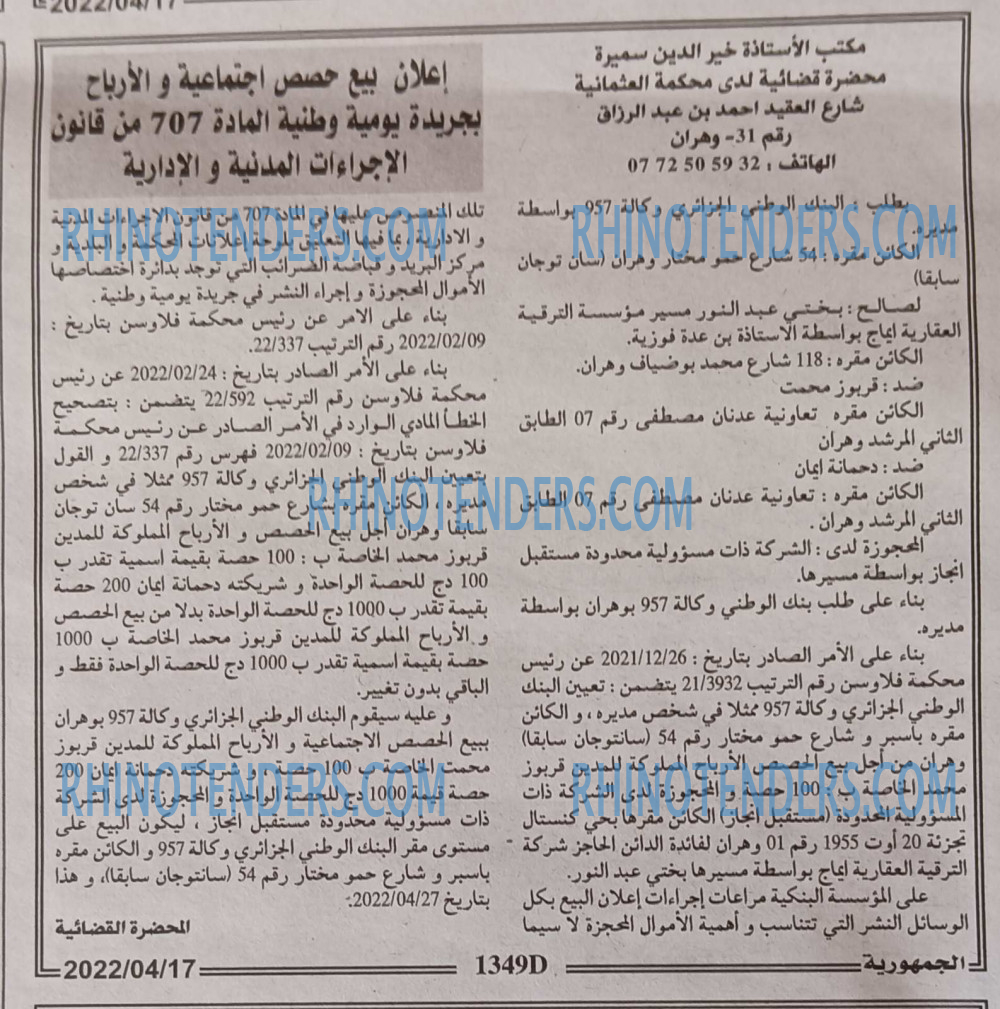 2022/04/17
مكتب الأستاذة خير الدين سميرة
محضرة قضائية لدى محكمة العثمانية
شارع العقيد احمد بن عبد الرزاق
رقم 31- وهران
الهاتف : 32 59 50 72 07
بطلب : البنك الوطني الجزائري وكالة 957 بواسطة
مديره.
الكائن مقره : 54 شارع حمو مختار وهران (سان توجان
سابقا)
لصالح : بختي عبد النور مسير مؤسسة الترقية
العقارية ايماج بواسطة الاستاذة بن عدة فوزية.
الكائن مقره : 118 شارع محمد بوضياف وهران.
ضد : قربوز محمت
الكائن مقره تعاونية عدنان مصطفى رقم 07 الطابق
الثاني المرشد وهران
ضد : دحمانة ايمان
الكائن مقره : تعاونية عدنان مصطفى رقم 07 الطابق
الثاني المرشد وهران .
المحجوزة لدى : الشركة ذات مسؤولية محدودة مستقبل
انجاز بواسطة مسيرها.
بناء على طلب بنك الوطني وكالة 957 بوهران بواسطة
مديره.
بناء على الأمر الصادر بتاريخ : 2021/12/26 عن رئيس
محكمة فلاوسن رقم الترتيب 21/3932 يتضمن : تعيين البنك
الوطني الجزائري وكالة 957 ممثلا في شخص مديره ، و الكائن
مقره باسبر و شارع حمو مختار رقم 54 (سانتوجان سابقا)
وهران من أجل بيع الحصص الأرباح المملوكة للمدين قربوز
محمد الخاصة ب : 100 حصة و المحجوزة لدى الشركة ذات
المسؤولية المحدودة (مستقبل انجاز) الكائن مقرها بحي كنستال
تجزئة 20 أوت 1955 رقم 01 وهران لفائدة الدائن الحاجز شركة
الترقية العقارية ايماج بواسطة مسيرها بختي عبد النور.
على المؤسسة البنكية مراعات إجراءات إعلان البيع بكل
الوسائل النشر التي تتناسب و أهمية الأموال المحجزة لا سيما
إعلان بيع حصص اجتماعية و الأرباح
بجريدة يومية وطنية المادة 707 من قانون
الإجراءات المدنية و الإدارية
تلك المنصوص عليها في المادة 707 من قانون الإجراءات المدنية
و الادارية ، بما فيها التعليق بلوحة إعلانات المحكمة و البلدية و
مركز البريد و قباضة الضرائب التي توجد بدائرة اختصاصها
الأموال المحجوزة و إجراء النشر في جريدة يومية وطنية .
بناء على الامر عن رئيس محكمة فلاوسن بتاريخ :
2022/02/09 رقم الترتيب 22/337.
بناء على الأمر الصادر بتاريخ : 2022/02/24 عن رئيس
محكمة فلاوسن رقم الترتيب 22/592 يتضمن : بتصحيح
الخطأ المادي الوارد في الأمر الصادر عن رئيس محكمة
فلاوسن بتاريخ : 2022/02/09 فهرس رقم 22/337 و القول
بتعيين البنك الوطني الجزائري وكالة 957 ممثلا في شخص
مديره ، الكائن مقره بشارع حمو مختار رقم 54 سان توجان
سابقا وهران أجل بيع الحصص و الأرباح المملوكة للمدين
قربوز محمد الخاصة ب : 100 حصة بقيمة اسمية تقدر ب
100 دج للحصة الواحدة و شريكته دحمانة ايمان 200 حصة
بقيمة تقدر ب 1000 دج للحصة الواحدة بدلا من بيع الحصص
و الأرباح المملوكة للمدين قربوز محمد الخاصة ب 1000
حصة بقيمة اسمية تقدر ب 1000 دج للحصة الواحدة فقط و
الباقي بدون تغيير.
و عليه سيقوم البنك الوطني الجزائري وكالة 957 بوهران
ببيع الحصص الاجتماعية و الأرباح المملوكة للمدين قربوز
محمت الخاصة ب 100 حصة ، و شريكته دحمانة ايمان 200
حصة قيمة 1000 دج للحصة الواحدة و المحجوزة لدى الشركة
ذات مسؤولية محدودة مستقبل انجاز ، ليكون البيع على
مستوى مقر البنك الوطني الجزائري وكالة 957 و الكائن مقره
باسبر و شارع حمو مختار رقم 54 (سانتوجان سابقا)، و هذا
بتاريخ 2022/04/27.
المحضرة القضائية
الجمهورية
1349D
2022/04/17
RHINOTENDERS.COM
RHINOTENDERS.COM
RHINOTENDERS.COM
RHINOTENDERS.COM
RHINOTENDERS.COM